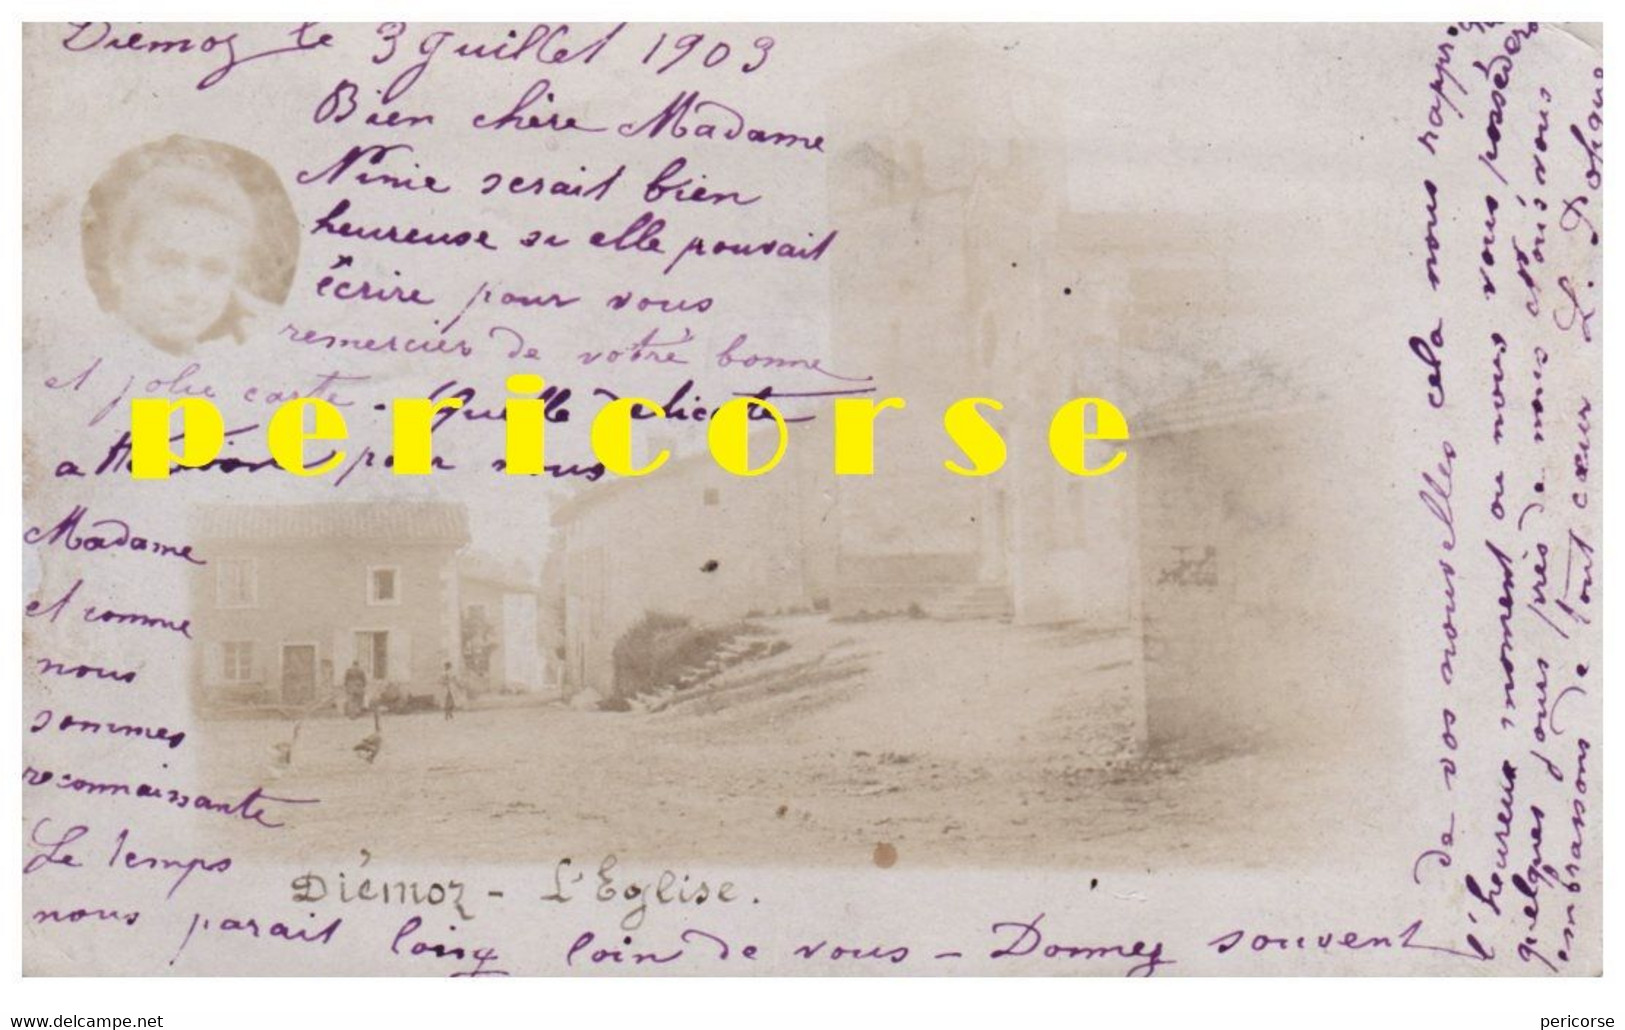 Diemoz le 3 Juillet 1903
Bien chère Madame
Ninie serait bien
heureuse si elle pouvait
écrire pour vous
remercier de votre bonne
et jolie carte - Quelle délicate
attention pour nous
pericorse
Madame
et comme
nous
sommes
reconnaissante
Le temps
Diémoz - L'Eglise.
nous parait long loin de vous - Donnez souvent
de vos nouvelles cela nous
l'heureux moment ou nous vous posséderons
quelques jours près de nous et vous
embrassons de tout cœur L.
www.delcampe.net
pericorse